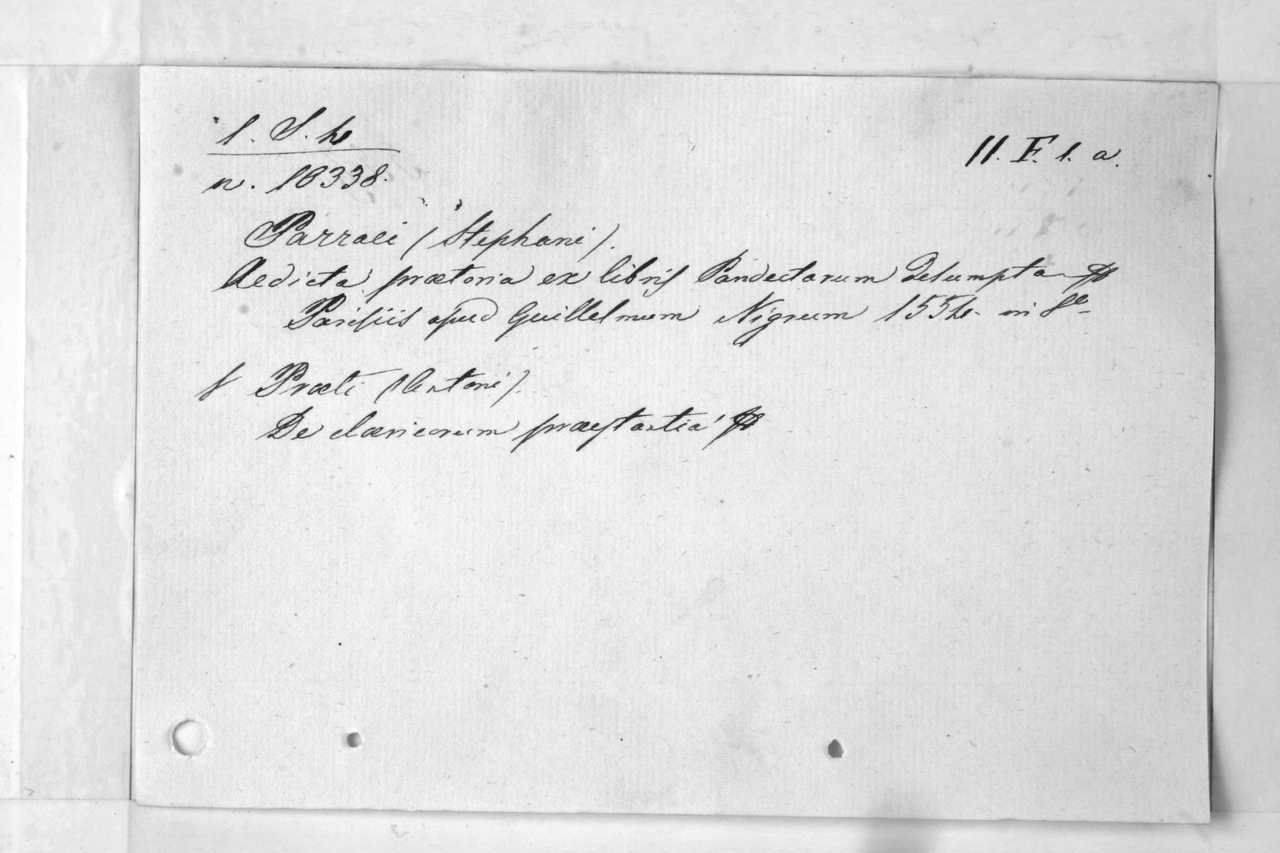 1. S. h
n. 18338.
II. F. 1. a.
Parraei (Stephani).
Aedicta praetoria ex libris Pandectarum desumpta
Parisiis apud Guillelmum Nigrum 155h. in 8º
Praeti (Antoni).
De claericorum praestantia